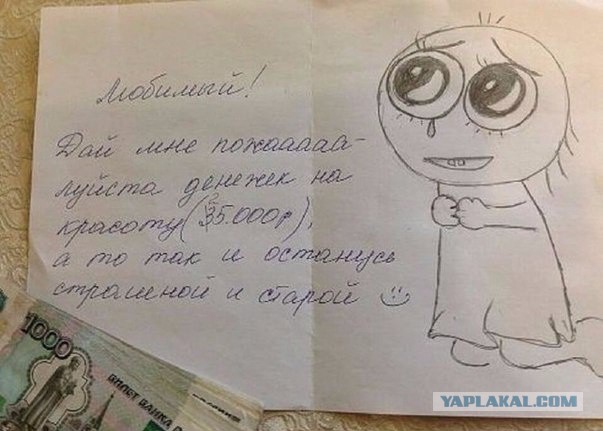 Любимый!
Дай мне пожааааа-
луйста денежек на
красоту (35.000р),
а то так и останусь
страшной и старой
1000
БИЛЕТ БАНКА
YAPLAKAL.COM